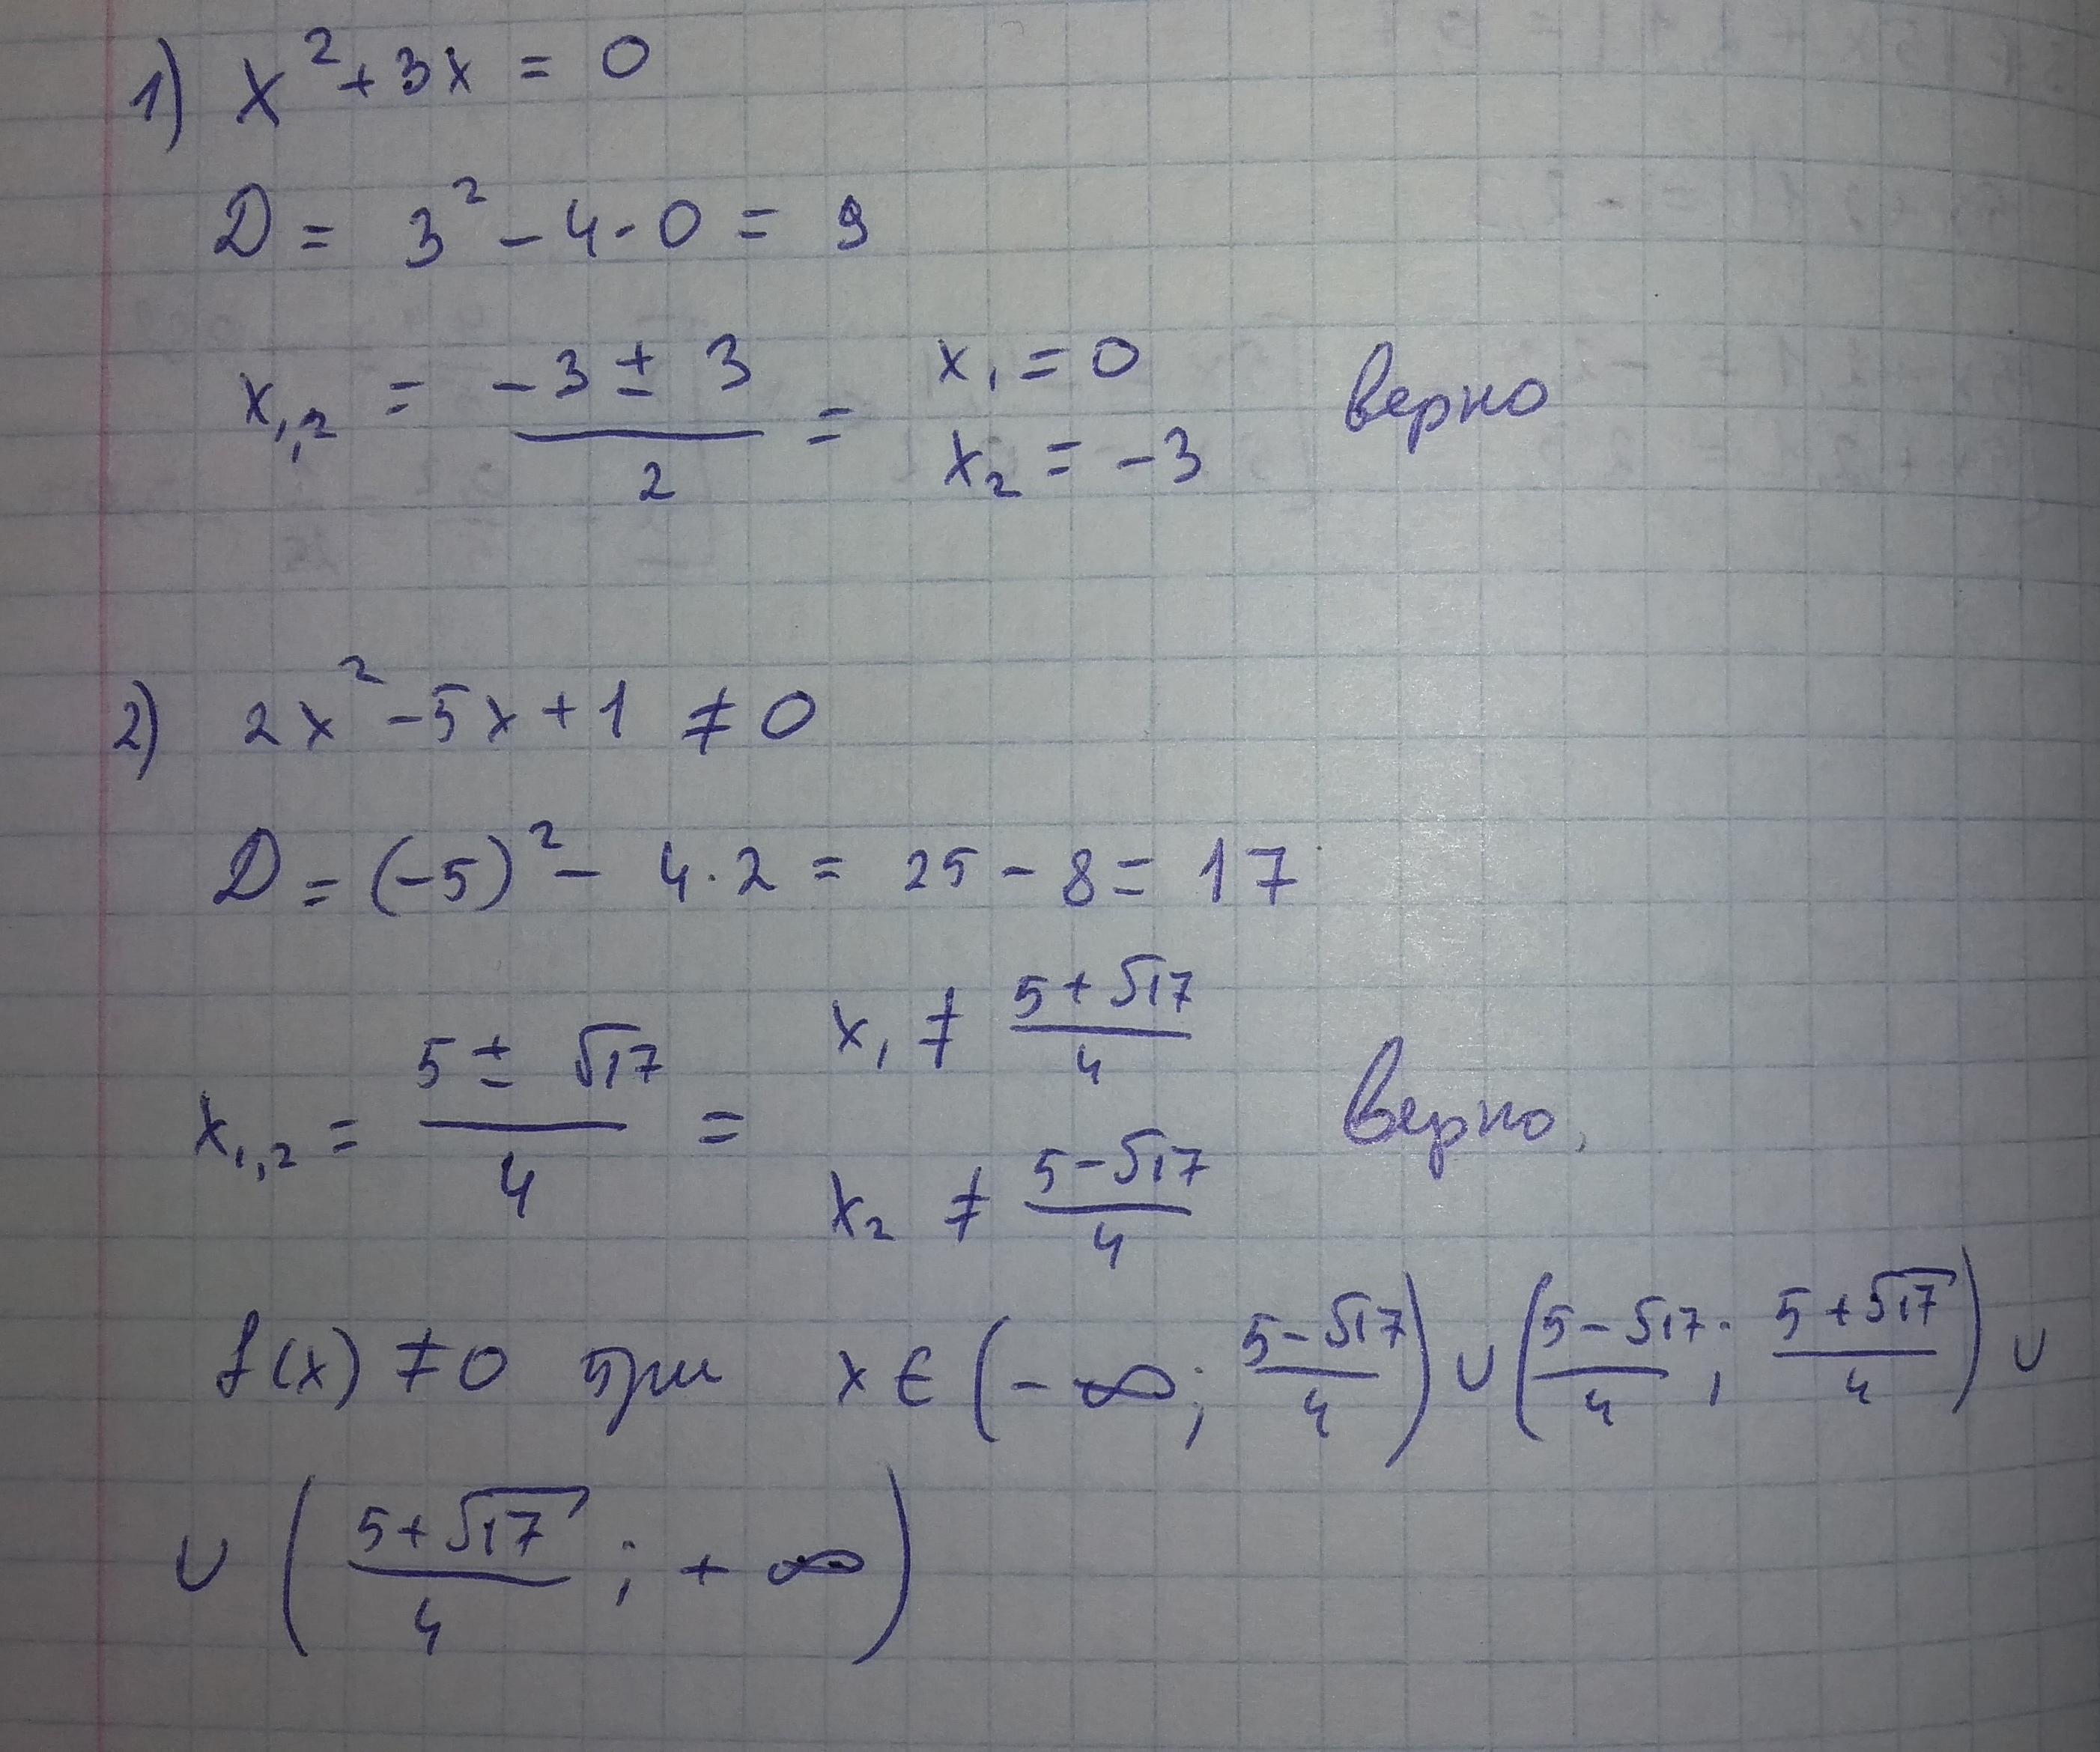 1) x² + 3x = 0
D = 3² - 4 · 0 = 9
x₁,₂ = (-3 ± 3)/2 = x₁ = 0 x₂ = -3 верно
2) 2x² - 5x + 1 ≠ 0
D = (-5)² - 4 · 2 = 25 - 8 = 17
x₁,₂ = (5 ± √17)/4 = x₁ ≠ (5+√17)/4 x₂ ≠ (5-√17)/4 верно.
f(x) ≠ 0 при x ∈ (-∞; (5-√17)/4) ∪ ((5-√17)/4; (5+√17)/4) ∪
∪ ((5+√17)/4; +∞)